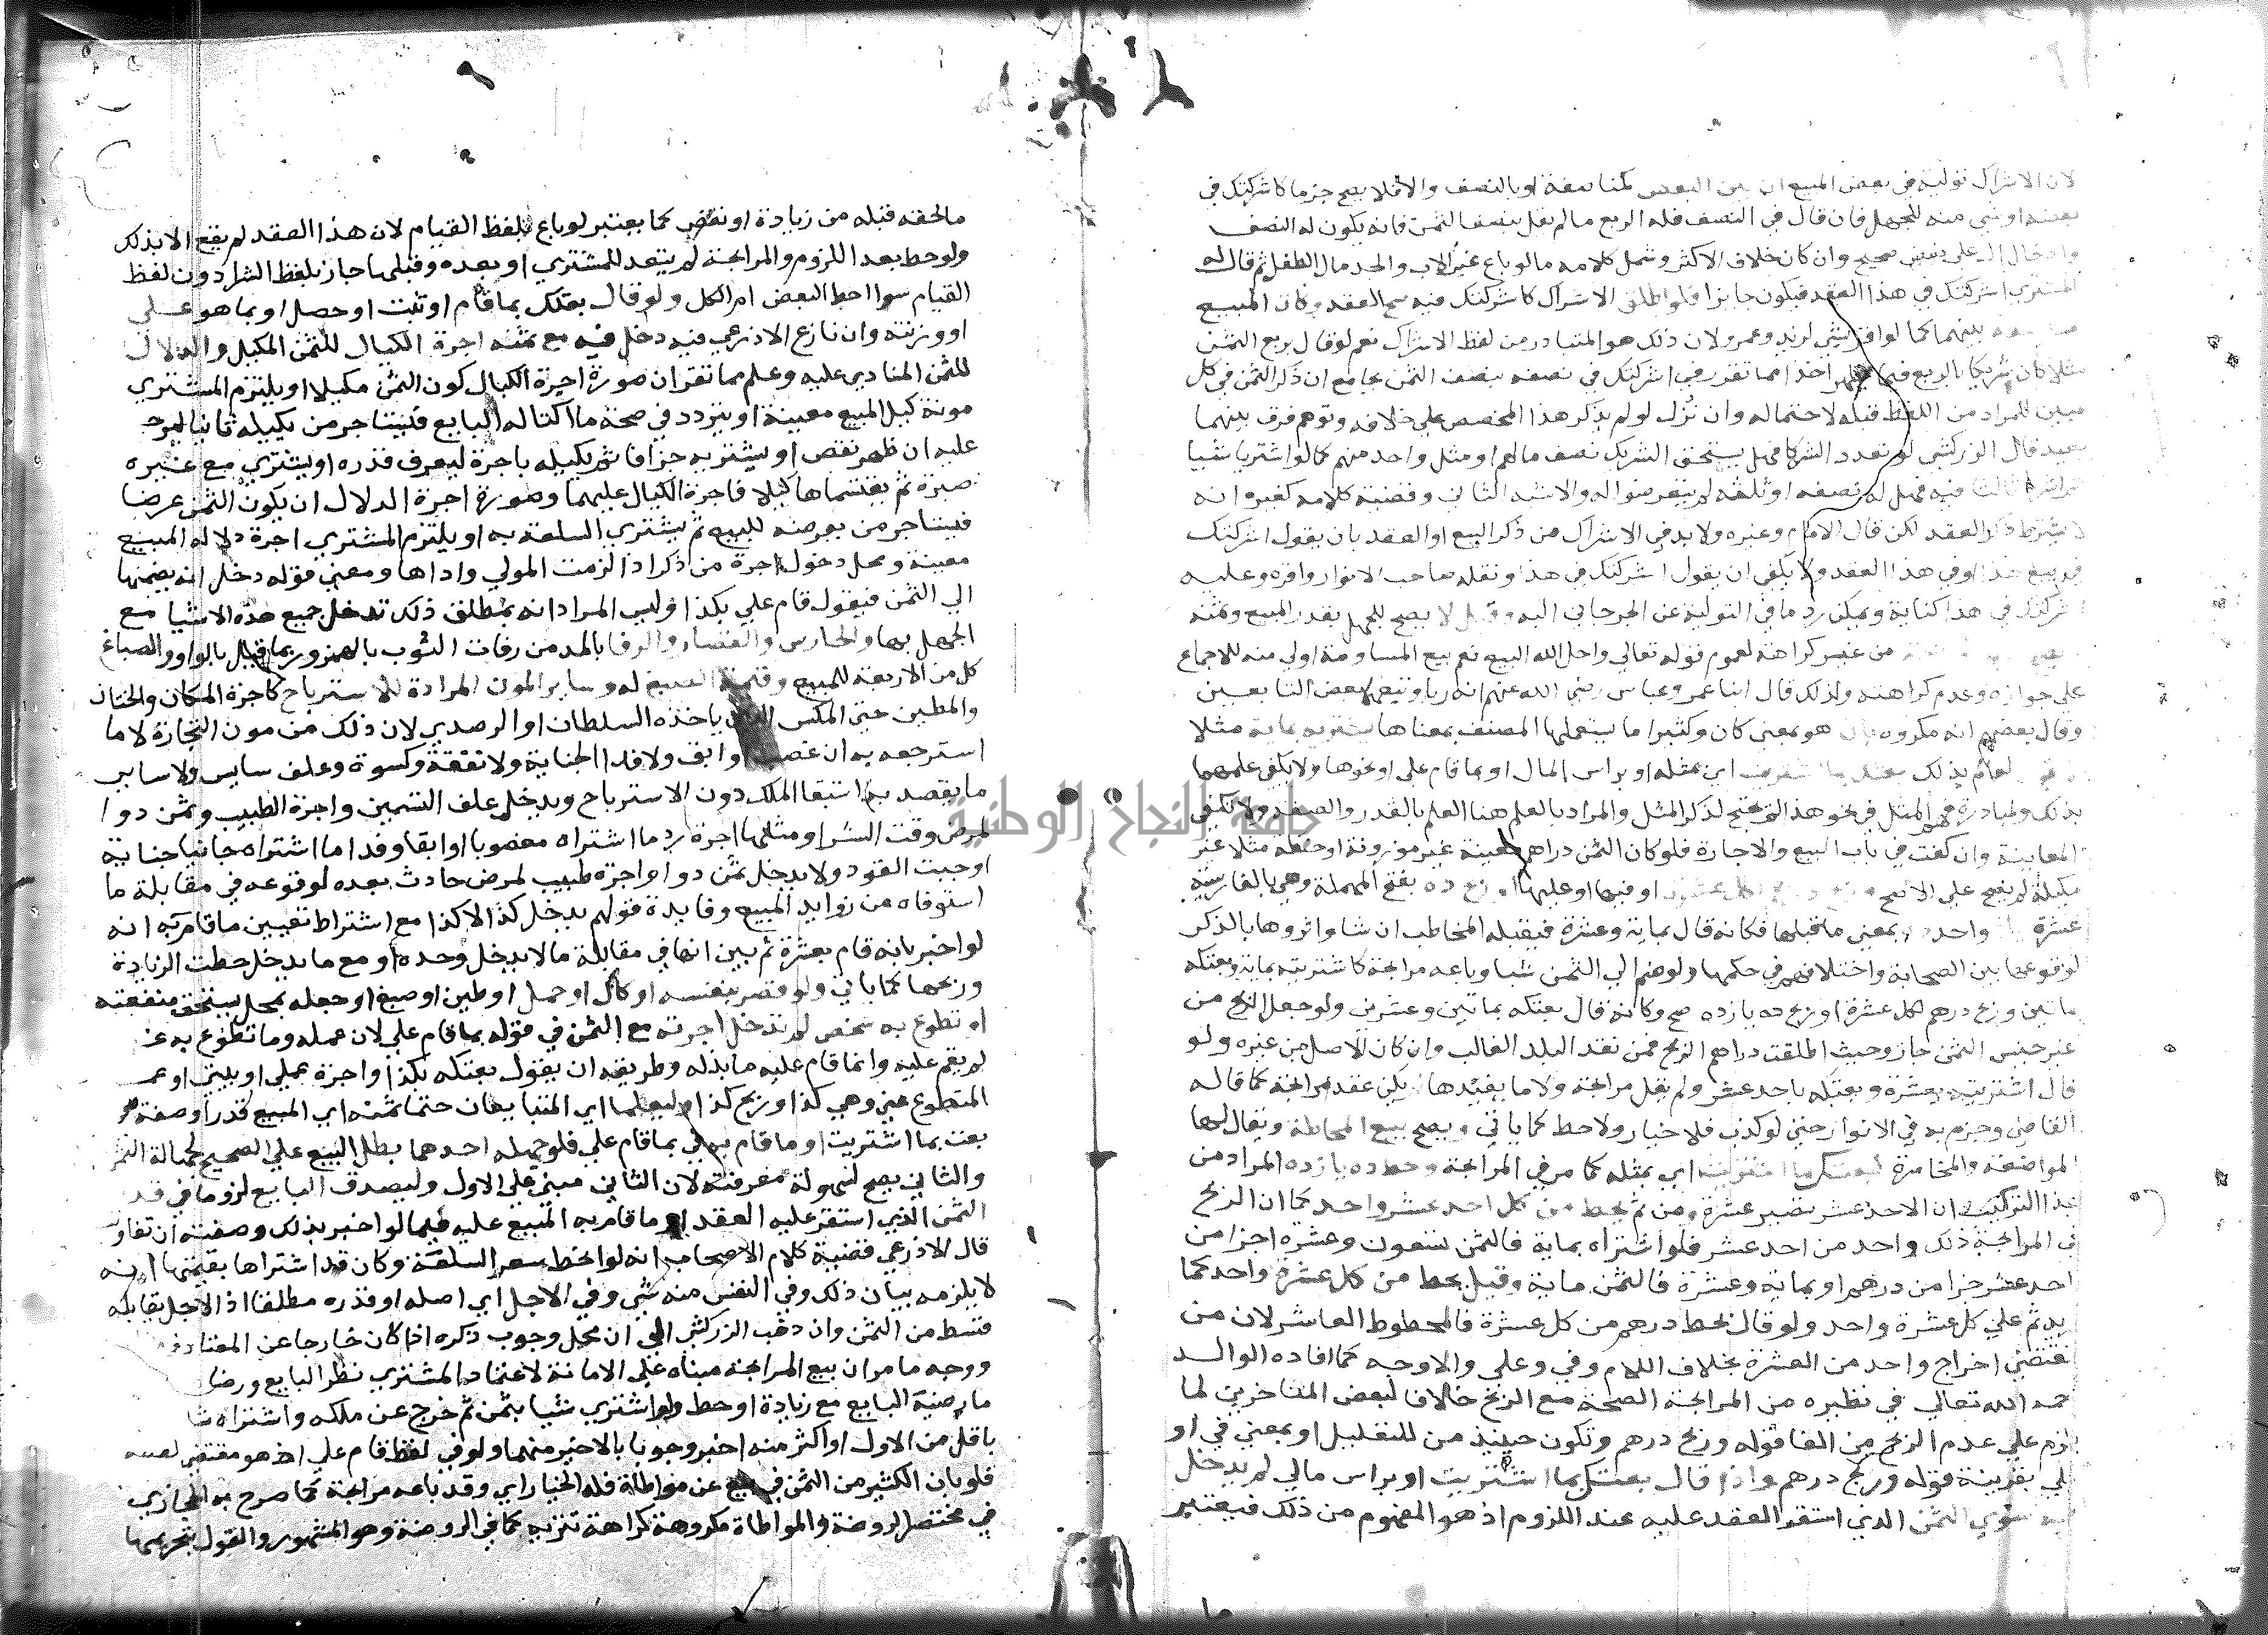 لان الاشراك تولية في بعض المبيع ان بين البعض كمناصفة او بالنصف والا فلا يصح جزما كاشركتك في
بعضه او شي منه للجهل فان قال في النصف فله الربع ما لم يقل بنصف الثمن فانه يكون له النصف
وادخال ال على بعض صحيح وان كان خلاف الاكثر وشمل كلامه ما لو باع غير الاب والجد مال الطفل ثم قال له
المشتري اشركتك في هذا العقد فيكون جايزا فلو اطلق الاشراك كاشركتك فيه صح العقد وكان المبيع
بينهما كما لو اقر بشي لزيد وعمرو لان ذلك هو المتبادر من لفظ الاشراك نعم لو قال بربع الثمن
مثلا كان شريكا بالربع فيما يظهر اخذا مما تقرر في اشركتك في نصفه بنصف الثمن بجامع ان ذكر الثمن في كل
مبين للمراد من اللفظ قبله لاحتماله وان نزل لو لم يذكر هذا المخصص على خلافه وتوهم فرق بينهما
بعيد قال الزركشي لو تعدد الشركا فهل يستحق الشريك نصف مالهم او مثل واحد منهم كما لو اشتريا شيا
ثم اشركا ثالثا فيه فهل له نصفه او ثلثه لم يتعرضوا له والاشبه الثاني وقضية كلامه كغيره انه
لا يشترط ذكر العقد لكن قال الامام وغيره ولا بد في الاشراك من ذكر البيع او العقد بان يقول اشركتك
في بيع هذا او في هذا العقد ولا يكفي ان يقول اشركتك في هذا ونقله صاحب الانوار واقره وعليه
اشركتك في هذا كناية ويمكن رد ما في التولية عن الجرجاني اليه وقيل لا يصح للجهل بقدر المبيع وثمنه
من غير كراهة لعموم قوله تعالى واحل الله البيع نعم بيع المساومة اولى منه للاجماع
على جوازه وعدم كراهته ولذلك قال ابنا عمر وعباس رضى الله عنهم انه ربا وتبعهما بعض التابعين
وقال بعضهم انه مكروه بان هو بمعنى كان وكثيرا ما يستعملها المصنف بمعناها يشتريه بماية مثلا
لعالم بذلك بعتك بما اشتريت اي بمثله او براس المال او بما قام علي او نحوها ولا يكفي علمهما
بذلك ولمبادرة فهم المثل في نحو هذا لم يحتج لذكر المثل والمراد بالعلم هنا العلم بالقدر والصفة ولا تكفي
المعاينة وان كفت في باب البيع والاجارة فلو كان الثمن دراهم معينة غير موزونة او حنطة مثلا غير
مكيلة لم يصح على الاصح وربح درهم لكل عشرة او فيها او عليها او ربح ده بفتح المهملة وهي بالفارسية
عشرة واحد بمعنى ما قبلها فكانه قال بماية وعشرة فيقبله المخاطب ان شا واثروها بالذكر
لوقوعها بين الصحابة واختلافهم في حكمها ولو ضم الي الثمن شيا وباعه مرابحة كاشتريته بماية وبعتكه
بماتين وربح درهم لكل عشرة او ربح ده يازده صح وكانه قال بعتكه بماتين وعشرين ولو جعل الربح من
غير جنس الثمن جاز وحيث اطلقت دراهم الربح فمن نقد البلد الغالب وان كان الاصل من غيره ولو
قال اشتريته بعشرة وبعتكه باحد عشر ولم يقل مرابحة ولا ما يفيدها لم يكن عقد مرابحة كما قاله
القاضي وجزم به في الانوار حتى لو كذب فلا خيار ولا حط كما ياتي ويصح بيع المحاطة ويقال لها
المواضعة والمخاسرة كبعتك بما اشتريت اي بمثله كما مر في المرابحة وحط ده يازده المراد من
هذا التركيب ان الاحد عشر تصير عشرة ومن ثم يحط من كل احد عشر واحد كما ان الربح
في المرابحة ذلك واحد من احد عشر فلو اشتراه بماية فالثمن تسعون وعشرة اجزا من
احد عشر جزا من درهم او بماية وعشرة فالثمن ماية وقيل يحط من كل عشرة واحد كما
يزيد ثم علي كل عشرة واحد ولو قال بحط درهم من كل عشرة فالمحطوط العاشر لان من
تقتضي اخراج واحد من العشرة بخلاف اللام وفي وعلى والاوجه كما افاده الوالد
رحمه الله تعالي في نظيره من المرابحة الصحة مع الربح خلافا لبعض المتاخرين لما
يلزم علي عدم الربح من الغا قوله وربح درهم وتكون حينيذ من للتعليل او بمعنى في او
علي بقرينة قوله وربح درهم واذا قال بعتك بما اشتريت او براس مالي لم يدخل
فيه سوي الثمن الذي استقر العقد عليه عند اللزوم اذ هو المفهوم من ذلك فيعتبر
ما لحقه قبله من زيادة او نقص كما يعتبر لو باع بلفظ القيام لان هذا العقد لم يقع الا بذلك
ولو حط بعد اللزوم والمرابحة لم يتعد للمشتري او بعده وقبلها جاز بلفظ الشرا دون لفظ
القيام سوا احط البعض ام الكل ولو قال بعتك بما قام او ثبت او حصل او بما هو علي
او وزنته وان نازع الاذرعي فيه دخل فيه مع ثمنه اجرة الكيال للثمن المكيل والدلال
للثمن المنادي عليه وعلم مما تقرر ان صورة اجرة الكيال كون الثمن مكيلا او يلتزم المشتري
مونة كيل المبيع معينة او يتردد في صحة ما اكتاله البايع فيستاجر من يكيله ثانيا ليرجع
عليه ان ظهر نقص او يشتريه جزافا ثم يكيله باجرة ليعرف قدره او يشتري مع غيره
صبرة ثم يقتسماها كيلا فاجرة الكيال عليهما وصورة اجرة الدلال ان يكون الثمن عرضا
فيستاجر من يعرضه للبيع ثم يشتري السلعة به او يلتزم المشتري اجرة دلالة المبيع
معينة ومحل دخول اجرة من ذكر اذا لزمت المولي واداها ومعني قوله دخل انه يضمها
الي الثمن فيقول قام علي بكذا وليس المراد انه بمطلق ذلك تدخل جميع هذه الاشيا مع
الجهل بها والحارس والقصار والرفا بالمد من رفات الثوب بالهمز وربما قيل بالواو والصباغ
كل من الاربعة للمبيع وقيمة الصبغ له وساير المون المرادة للاسترباح كاجرة المكان والختان
والمطين حتي المكس الذي ياخذه السلطان او الرصدي لان ذلك من مون التجارة لا ما
استرجعه به ان غصب او ابق ولا فدا الجناية ولا نفقة وكسوة وعلف سايس ولا ساير
ما يقصد به استبقا الملك دون الاسترباح ويدخل علف التسمين واجرة الطبيب وثمن دوا
لمرض وقت الشرا ومثلها اجرة رد ما اشتراه مغصوبا او ابقا وفدا ما اشتراه جانيا جناية
اوجبت القود ولا يدخل ثمن دوا واجرة طبيب لمرض حادث بعده لوقوعه في مقابلة ما
استوفاه من زوايد المبيع وفايدة قولهم يدخل كذا لا كذا مع اشتراط تعيين ما قام به انه
لو اخبر بانه قام بعشرة ثم بين انها في مقابلة ما لا يدخل وحده او مع ما يدخل حطت الزيادة
وربحها كما ياتي ولو قصر بنفسه او كال او حمل او طين او صبغ او جعله بمحل يستحق منفعته
او تطوع به شخص لم تدخل اجرته مع الثمن في قوله بما قام علي لان عمله وما تطوع به غيره
لم يقم عليه وانما قام عليه ما بذله وطريقه ان يقول بعتكه بكذا واجرة عملي او بيتي او عمل
المتطوع عني وهي كذا وربح كذا وليعلما اي المتبايعان حتما ثمنه اي المبيع قدرا وصفة في
بعت بما اشتريت او ما قام به في بما قام علي فلو جهله احدهما بطل البيع علي الصحيح لجهالة الثمن
والثاني يصح لسهولة معرفته لان الثاني مبني علي الاول وليصدق البايع لزوما في قدر
الثمن الذي استقر عليه العقد او ما قام به المبيع عليه فيما لو اخبر بذلك وصفته ان تفاوتت
قال الاذرعي قضية كلام الاصحاب انه لو انحط سعر السلعة وكان قد اشتراها بقيمتها انه
لا يلزمه بيان ذلك وفي النفس منه شي وفي الاجل اي اصله او قدره مطلقا اذ الاجل يقابله
قسط من الثمن وان ذهب الزركشي الي ان محل وجوب ذكره اذا كان خارجا عن المعتاد
ووجه ما مر ان بيع المرابحة مبناه علي الامانة لاعتماد المشتري نظر البايع ورضا
ما رضيه البايع مع زيادة او حط ولو اشتري شيا بثمن ثم خرج عن ملكه واشتراه ثانيا
باقل من الاول او اكثر منه اخبر وجوبا بالاخير منهما ولو في لفظ قام علي اذ هو مقتض لفظه
فلو بان الكثير من الثمن في بيع عن مواطاة فله الخيار اي وقد باعه مرابحة كما صرح به الحجازي
في مختصر الروضة والمواطاة مكروهة كراهة تنزيه كما في الروضة وهو المشهور والقول بتحريمها
جامعة النجاح الوطنية